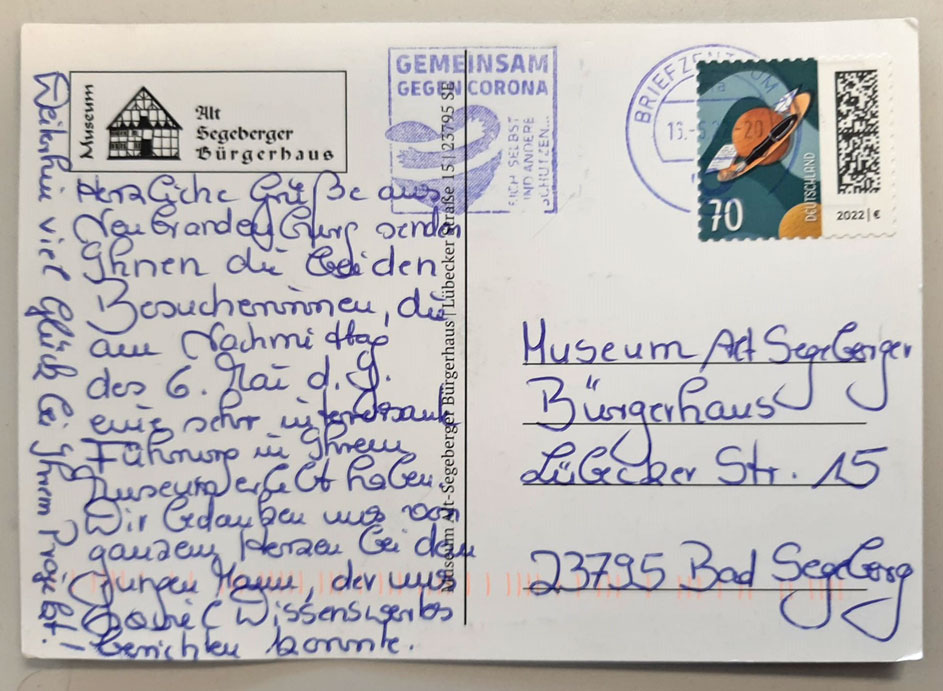 Museum
Alt
Segeberger
Bürgerhaus
Herzliche Grüße aus
Neubrandenburg senden
Ihnen die beiden
Besucherinnen, die
am Nachmittag
des 6. Mai d. J.
eine sehr interessante
Führung in Ihrem
Museum erlebt haben.
Wir bedanken uns von
ganzem Herzen bei dem
jungen Mann, der uns
soviel Wissenswertes
berichten konnte. –
Weiterhin viel Glück bei Ihrem Projekt!
Museum Alt-Segeberger Bürgerhaus | Lübecker Straße 15 | 23795 SE
GEMEINSAM
GEGEN CORONA
SICH SELBST
UND ANDERE
SCHÜTZEN...
BRIEFZENTRUM
DEUTSCHLAND
70
2022 | €
Museum Alt Segeberger
Bürgerhaus
Lübecker Str. 15
23795 Bad Segeberg